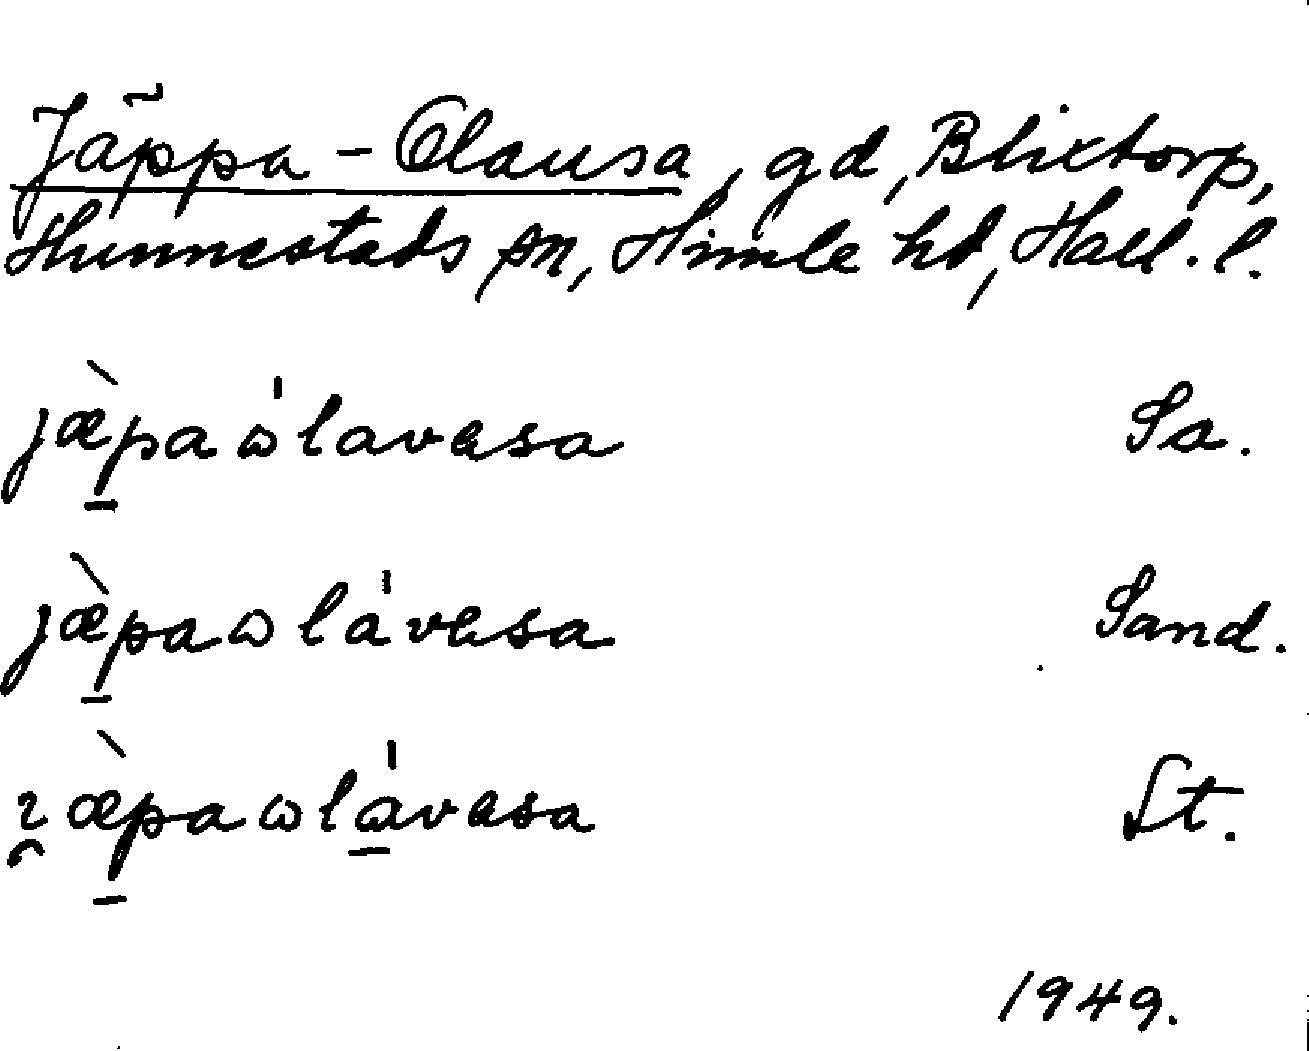 Jäppa-Olausa, gd, Blixtorp,
Hunnestads sn, Himle hd, Hall. l.
jæ̀paωlavɐsa Sa.
jæ̀paωlávɐsa Sand.
ɿæ̀paωlávɐsa St.
1949.